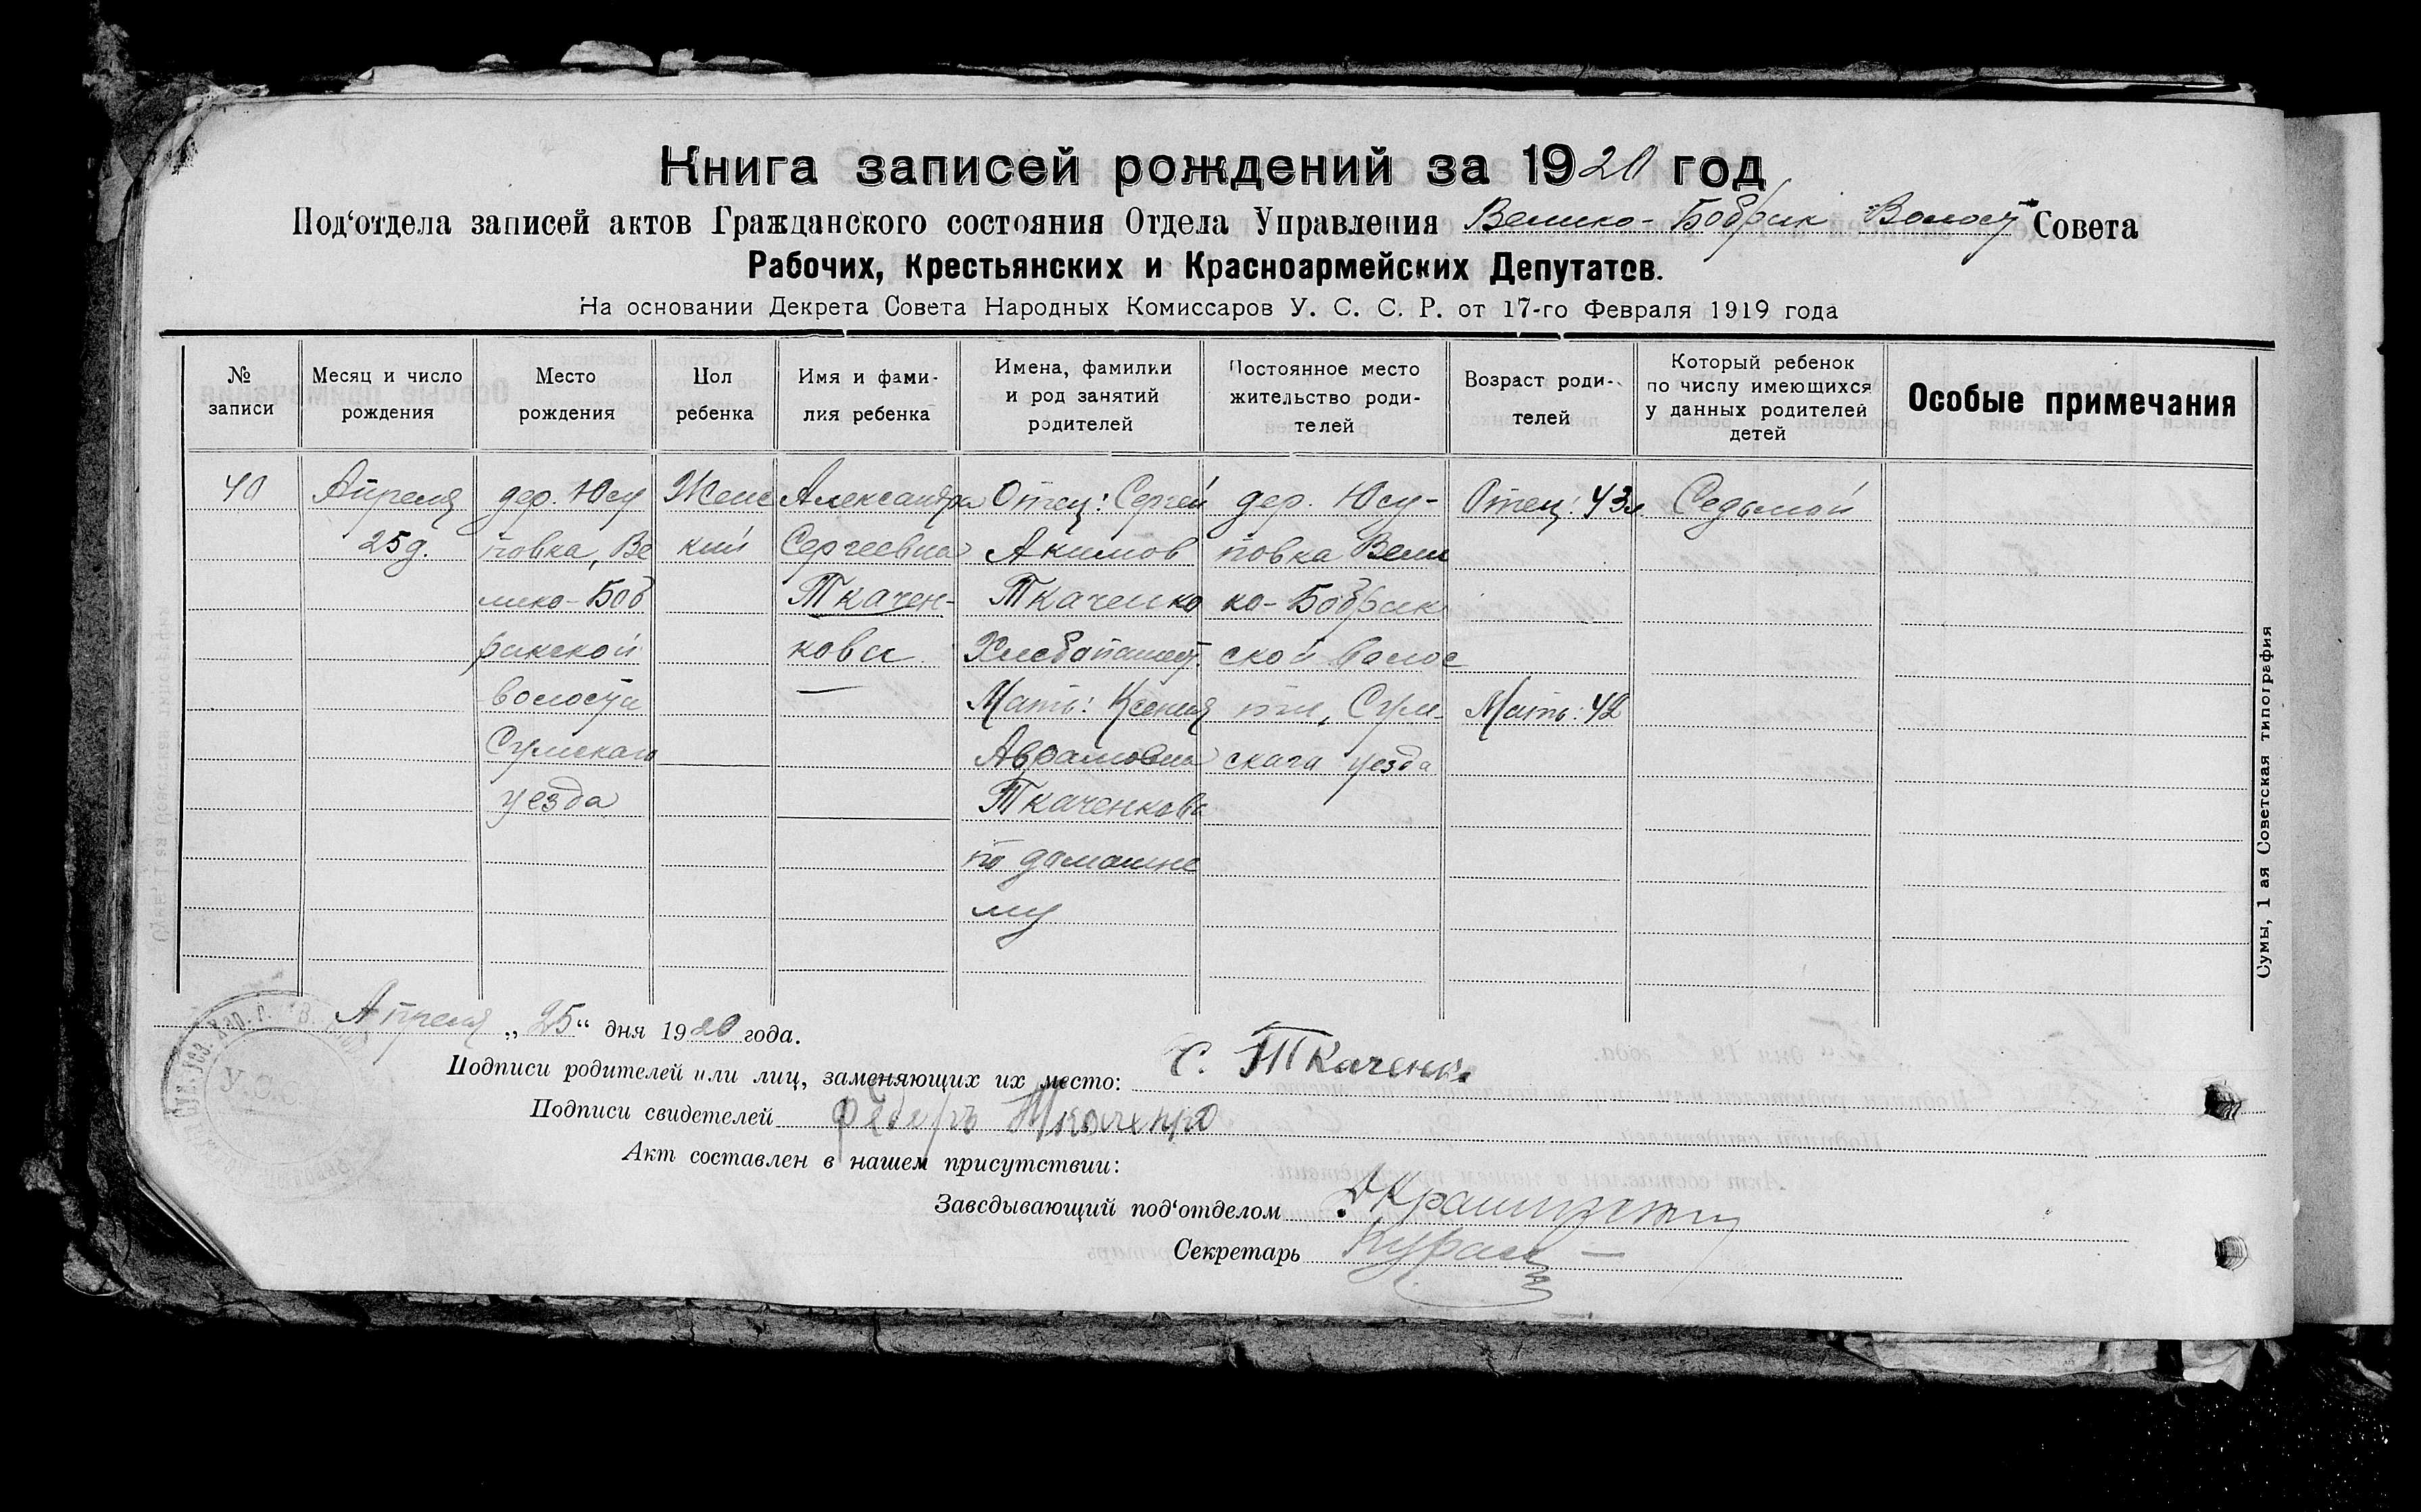 Книга записей рождений за 1920 год
Под‘отдела записей актов Гражданского состояния Отдела Управления Велико-Бобрик Волост Совета
Рабочих, Крестьянских и Красноармейских Депутатов.
На основании Декрета Совета Народных Комиссаров У. С. С. Р. от 17-го Февраля 1919 года
№ записи
Месяц и число рождения
Место рождения
Пол ребенка
Имя и фами-
лия ребенка
Имена, фамилии
и род занятий
родителей
Постоянное место
жительство роди-
телей
Возраст роди-
телей
Который ребенок
по числу имеющихся
у данных родителей
детей
Особые примечания
40
Апреля
25 д.
дер. Юсу
повка, Ве
лико-Боб
рикской
волости
Сумскаго
уезда
Женс
кий
Александра
Сергеевна
Ткачен-
кова
Отец: Сергей
Акимов
Ткаченко
Хлебопашест.
Мать: Ксения
Аврамовна
Ткаченкова
по домашне
му
дер. Юсу-
повка Вели
ко-Бобрик
ской волос
ти, Сум-
скаго уезда
Отец: 43 л.
Мать: 42
Седьмой
Апреля „25“ дня 1920 года.
Подписи родителей или лиц, заменяющих их место: С. Ткаченко
Подписи свидетелей Федеръ Ткаченко
Акт составлен в нашем присутствии:
Заведывающий под‘отделом
Секретарь
Сумы, 1 ая Советская типография